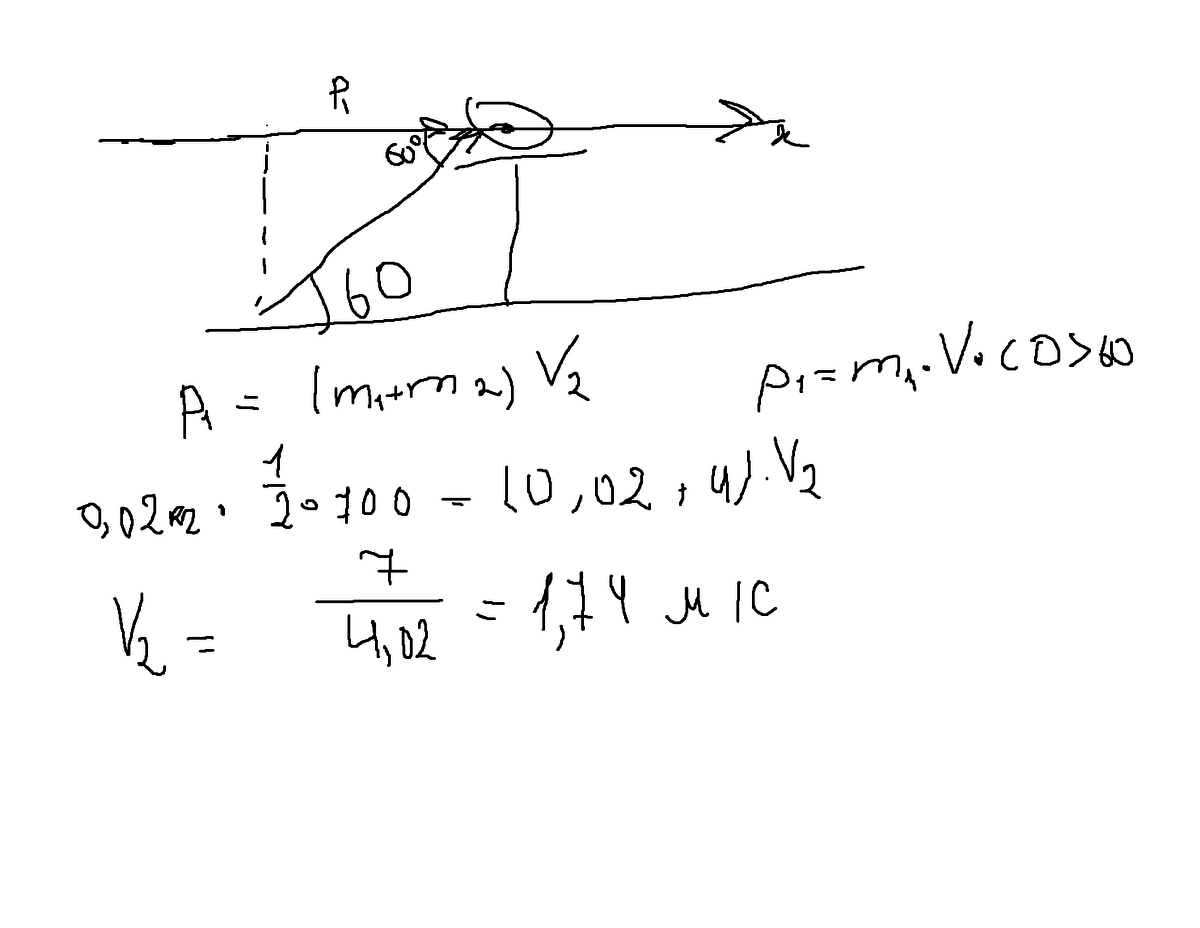 P₁
60°
x
60
P₁ = (m₁+m2) V₂
p₁ = m₁·V·cos60
0,02кг · 1/2 · 700 = (0,02 + 4)·V₂
V₂ = 7/4,02 = 1,74 м/с